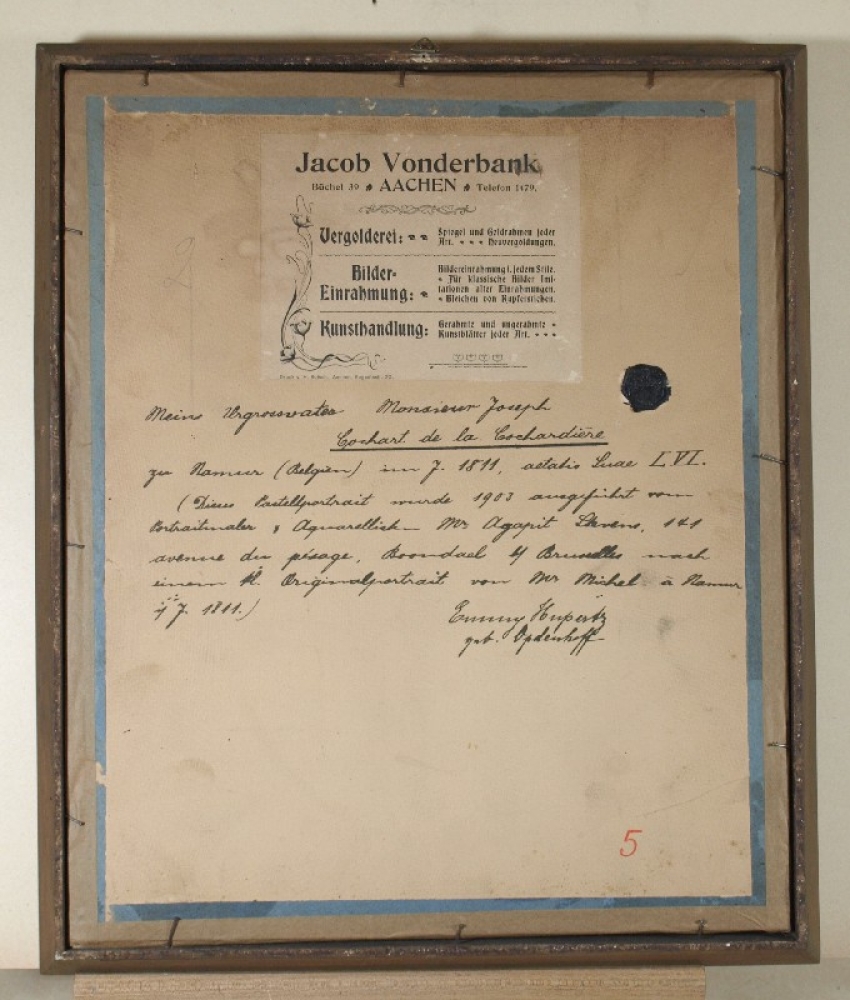 Jacob Vonderbank
Büchel 39 AACHEN Telefon 1479.
Vergolderei: Spiegel und Goldrahmen jeder
Art. Neuvergoldungen.
Bilder- Bildereinrahmung i. jedem Stile.
Einrahmung: Für klassische Bilder Imi-
tationen alter Einrahmungen.
Bleichen von Kupferstichen.
Kunsthandlung: Gerahmte und ungerahmte
Kunstblätter jeder Art.
Meine Urgrossvater Monsieur Joseph
Cochart de la Cochardière
zu Namur (Belgien) im J. 1811, aetatis Suae LVI.
(Dieses Pastellportrait wurde 1903 ausgeführt vom
Portraitmaler & Aquarellist Mr Agapit Stevens, 141
avenue du pésage, Boondael b/ Bruxelles nach
einem kl. Originalportrait von Mr Michel à Namur
i/ J. 1811.)
Emmy Hupertz
geb. Opdenhoff
5